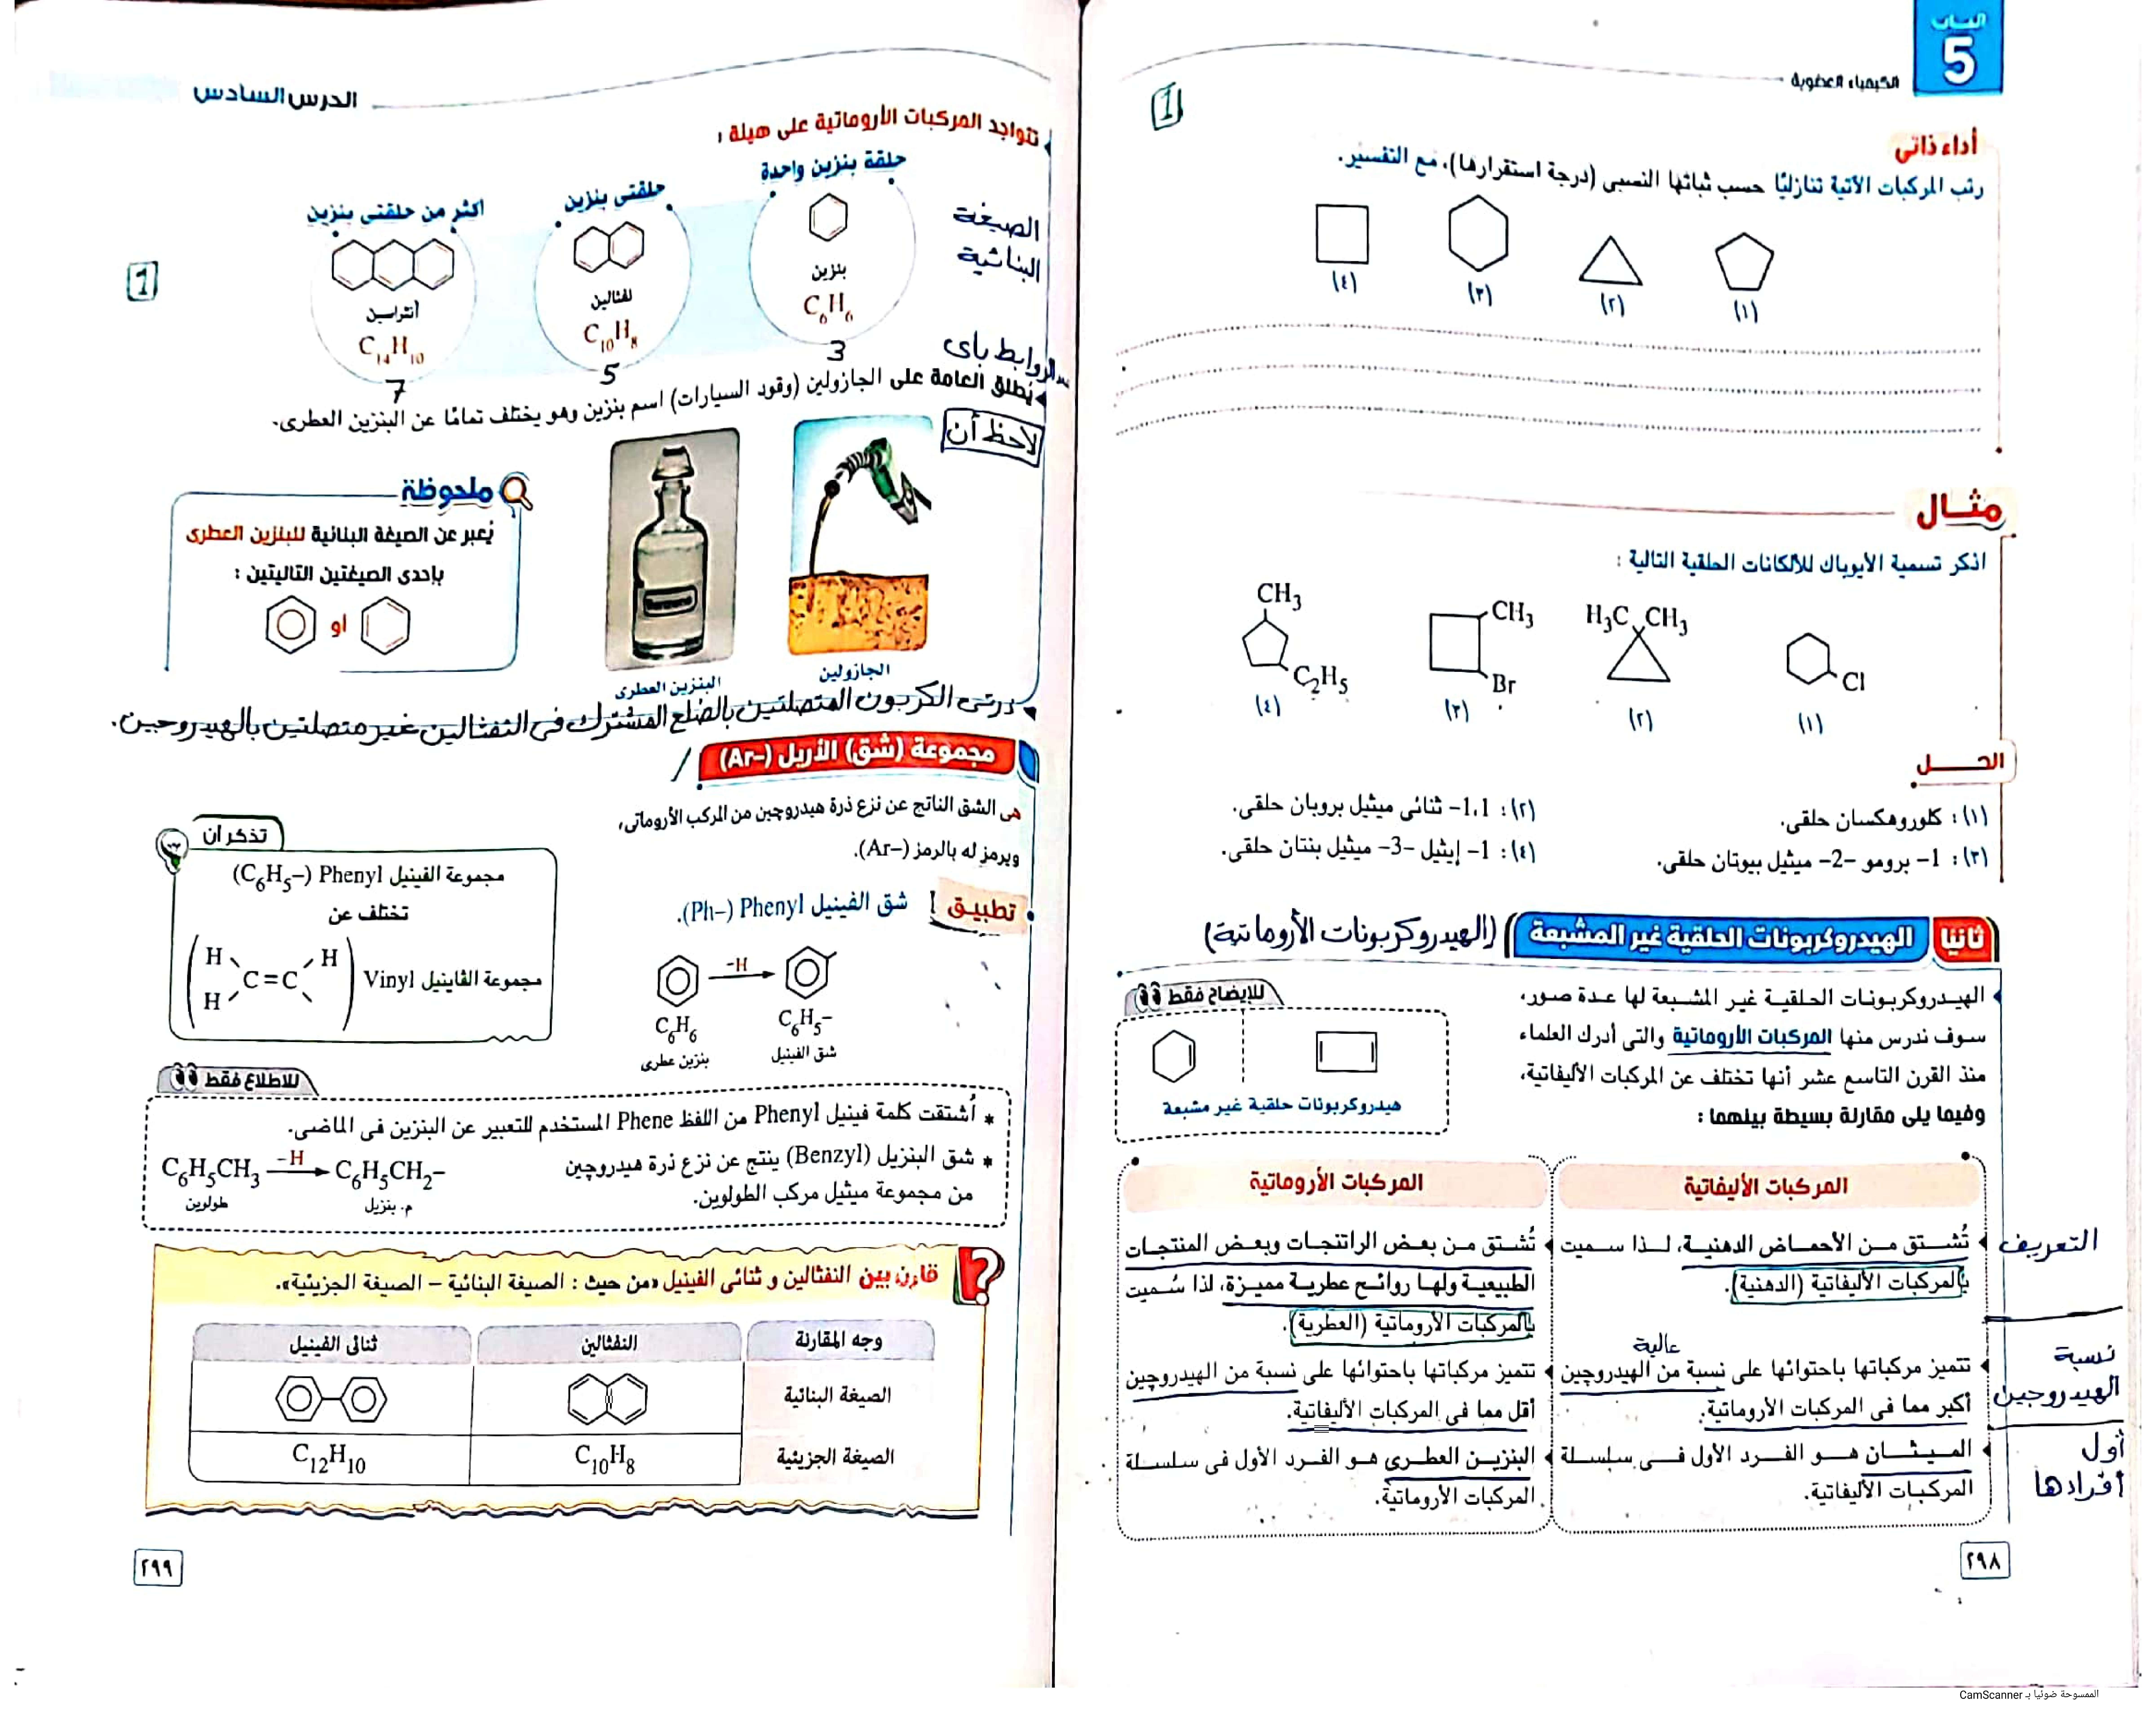 الباب
5
الكيمياء العضوية
1
أداء ذاتى
رتب المركبات الآتية تنازليًا حسب ثباتها النسبى (درجة استقرارها)، مع التفسير.
(١)
(٢)
(٣)
(٤)
مثــال
اذكر تسمية الأيوباك للألكانات الحلقية التالية :
Cl
(١)
H₃C CH₃
(٢)
CH₃
Br
(٣)
CH₃
C₂H₅
(٤)
الحـــل
(١) : كلوروهكسان حلقى.
(٢) : 1،1- ثنائى ميثيل بروبان حلقى.
(٣) : 1- برومو -2- ميثيل بيوتان حلقى.
(٤) : 1- إيثيل -3- ميثيل بنتان حلقى.
ثانيا الهيدروكربونات الحلقية غير المشبعة (الهيدروكربونات الأروماتية)
الهيـدروكربونـات الحلقيـة غير المشـبعة لها عـدة صور،
سوف ندرس منها المركبات الأروماتية والتى أدرك العلماء
منذ القرن التاسع عشر أنها تختلف عن المركبات الأليفاتية،
وفيما يلى مقارنة بسيطة بينهما :
للإيضاح فقط
هيدروكربونات حلقية غير مشبعة
المركبات الأليفاتية
المركبات الأروماتية
التعريف
تُشـتق مـن الأحمـاض الدهنيـة، لـذا سـميت
بالمركبات الأليفاتية (الدهنية).
تُشـتق مـن بعـض الراتنجـات وبعـض المنتجـات
الطبيعيـة ولهـا روائـح عطريـة مميـزة، لذا سُـميت
بالمركبات الأروماتية (العطرية).
نسبة
الهيدروجين
عالية
تتميز مركباتها باحتوائها على نسبة من الهيدروجين
أكبر مما فى المركبات الأروماتية.
تتميز مركباتها باحتوائها على نسبة من الهيدروجين
أقل مما فى المركبات الأليفاتية.
أول
أفرادها
الميثـان هـو الفـرد الأول فـى سلسلـة
المركبـات الأليفاتية.
البنزيـن العطـرى هـو الفـرد الأول فى سلسـلة
المركبات الأروماتية.
٢٩٨
الدرس السادس
تتواجد المركبات الأروماتية على هيئة :
حلقة بنزين واحدة
حلقتى بنزين
أكثر من حلقتى بنزين
الصيغة
البنائية
بنزين
C₆H₆
نفثالين
C₁₀H₈
أنثراسين
C₁₄H₁₀
1
الروابط باى
3
5
7
يُطلق العامة على الجازولين (وقود السيارات) اسم بنزين وهو يختلف تمامًا عن البنزين العطرى.
لاحظ أن
الجازولين
البنزين العطرى
ملحوظة
يُعبر عن الصيغة البنائية للبنزين العطرى
بإحدى الصيغتين التاليتين :
أو
ذرتى الكربون المتصلتين بالضلع المشترك فى النفثالين غير متصلتين بالهيدروجين.
مجموعة (شق) الأريل (Ar–)
هى الشق الناتج عن نزع ذرة هيدروچين من المركب الأروماتى،
ويرمز له بالرمز (Ar–).
تطبيق شق الفينيل Phenyl (Ph–).
–H
C₆H₆
C₆H₅–
بنزين عطرى
شق الفينيل
تذكر أن
مجموعة الفينيل Phenyl (C₆H₅–)
تختلف عن
مجموعة الڤاينيل Vinyl
H H
C=C
H
للاطلاع فقط
* أُشتقت كلمة فينيل Phenyl من اللفظ Phene المستخدم للتعبير عن البنزين فى الماضى.
* شق البنزيل (Benzyl) ينتج عن نزع ذرة هيدروچين
من مجموعة ميثيل مركب الطولوين.
C₆H₅CH₃ –H C₆H₅CH₂–
طولوين
م. بنزيل
قارن بين النفثالين و ثنائى الفينيل «من حيث : الصيغة البنائية – الصيغة الجزيئية».
وجه المقارنة
النفثالين
ثنائى الفينيل
الصيغة البنائية
الصيغة الجزيئية
C₁₀H₈
C₁₂H₁₀
٢٩٩
الممسوحة ضوئيا بـ CamScanner